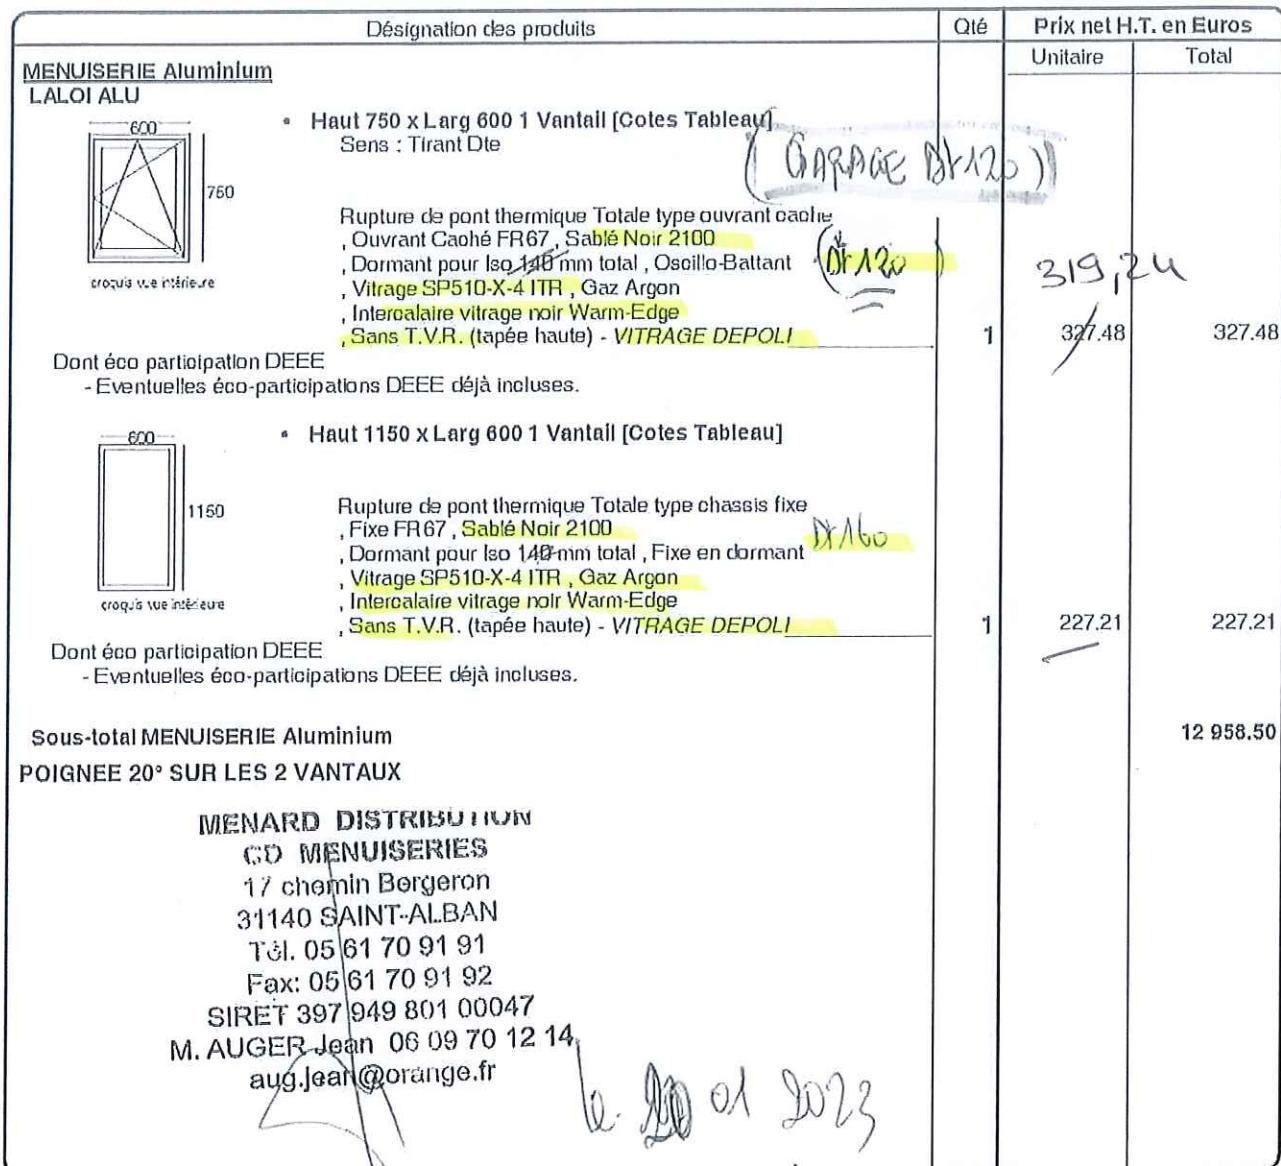 Désignation des produits
Qté
Prix net H.T. en Euros
Unitaire
Total
MENUISERIE Aluminium
LALOI ALU
600
750
croquis vue intérieure
• Haut 750 x Larg 600 1 Vantail [Cotes Tableau]
Sens : Tirant Dte
(GARAGE Dt 120)
Rupture de pont thermique Totale type ouvrant caché
, Ouvrant Caché FR67 , Sablé Noir 2100
, Dormant pour Iso 140 mm total , Oscillo-Battant
(Dt 120)
, Vitrage SP510-X-4 ITR , Gaz Argon
, Intercalaire vitrage noir Warm-Edge
, Sans T.V.R. (tapée haute) - VITRAGE DEPOLI
319,24
1 327.48 327.48
Dont éco participation DEEE
- Eventuelles éco-participations DEEE déjà incluses.
600
1150
croquis vue intérieure
• Haut 1150 x Larg 600 1 Vantail [Cotes Tableau]
Rupture de pont thermique Totale type chassis fixe
, Fixe FR67 , Sablé Noir 2100
Dt 160
, Dormant pour Iso 140 mm total , Fixe en dormant
, Vitrage SP510-X-4 ITR , Gaz Argon
, Intercalaire vitrage noir Warm-Edge
, Sans T.V.R. (tapée haute) - VITRAGE DEPOLI
1 227.21 227.21
Dont éco participation DEEE
- Eventuelles éco-participations DEEE déjà incluses.
Sous-total MENUISERIE Aluminium 12 958.50
POIGNEE 20° SUR LES 2 VANTAUX
MENARD DISTRIBUTION
CD MENUISERIES
17 chemin Bergeron
31140 SAINT-ALBAN
Tél. 05 61 70 91 91
Fax: 05 61 70 91 92
SIRET 397 949 801 00047
M. AUGER Jean 06 09 70 12 14
aug.jean@orange.fr
le 01 2023